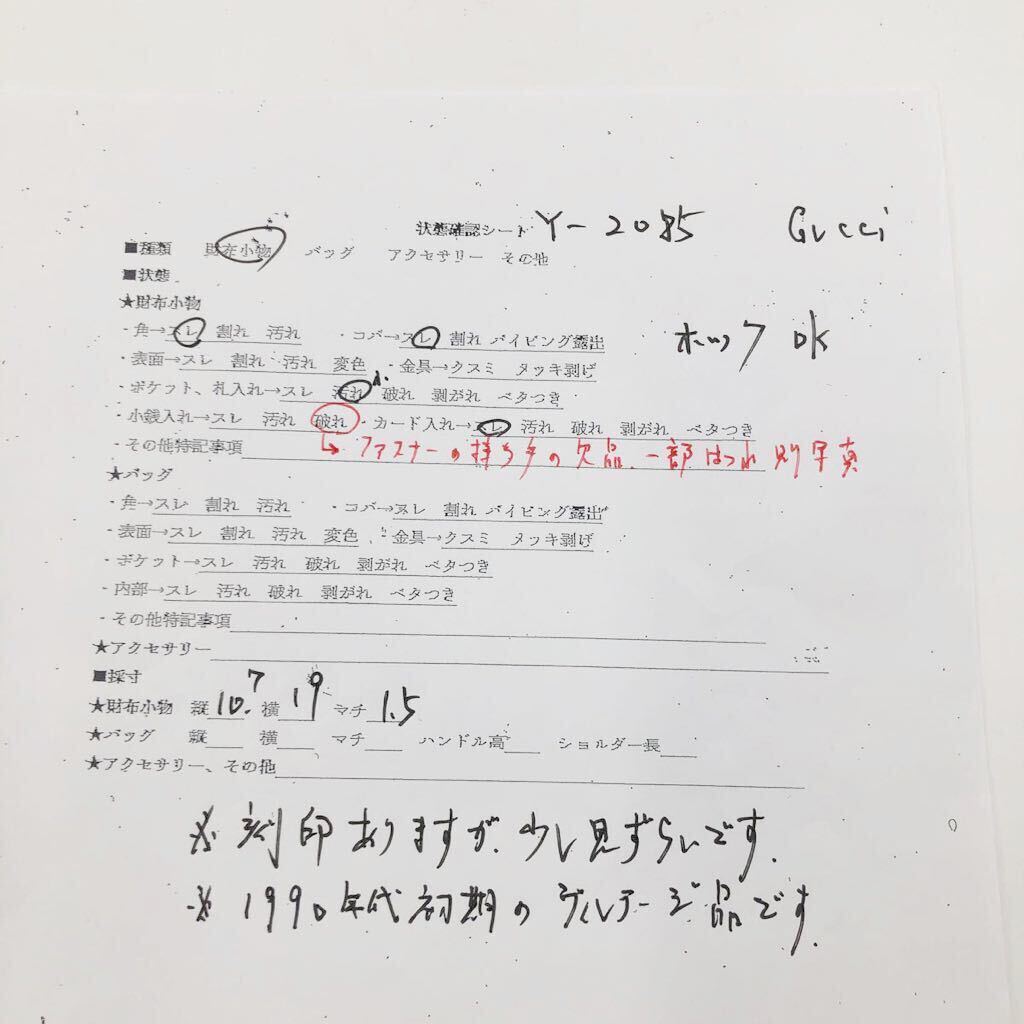 状態確認シート Y-2085 Gucci
■種類 財布小物 バッグ アクセサリー その他
■状態
★財布小物
・角→スレ 割れ 汚れ ・コバ→スレ 割れ パイピング露出 ホック OK
・表面→スレ 割れ 汚れ 変色 ・金具→クスミ メッキ剥げ
・ポケット、札入れ→スレ 汚れ 破れ 剥がれ ベタつき
・小銭入れ→スレ 汚れ 破れ ・カード入れ→スレ 汚れ 破れ 剥がれ ベタつき
・その他特記事項 ↳ファスナーの持ち手の欠品、一部ほつれ 別写真
★バッグ
・角→スレ 割れ 汚れ ・コバ→スレ 割れ パイピング露出
・表面→スレ 割れ 汚れ 変色 ・金具→クスミ メッキ剥げ
・ポケット→スレ 汚れ 破れ 剥がれ ベタつき
・内部→スレ 汚れ 破れ 剥がれ ベタつき
・その他特記事項
★アクセサリー
■採寸
★財布小物 縦10.7 横19 マチ1.5
★バッグ 縦 横 マチ ハンドル高 ショルダー長
★アクセサリー、その他
※刻印ありますが、少し見ずらいです.
※1990年代初期のヴィンテージ品です.